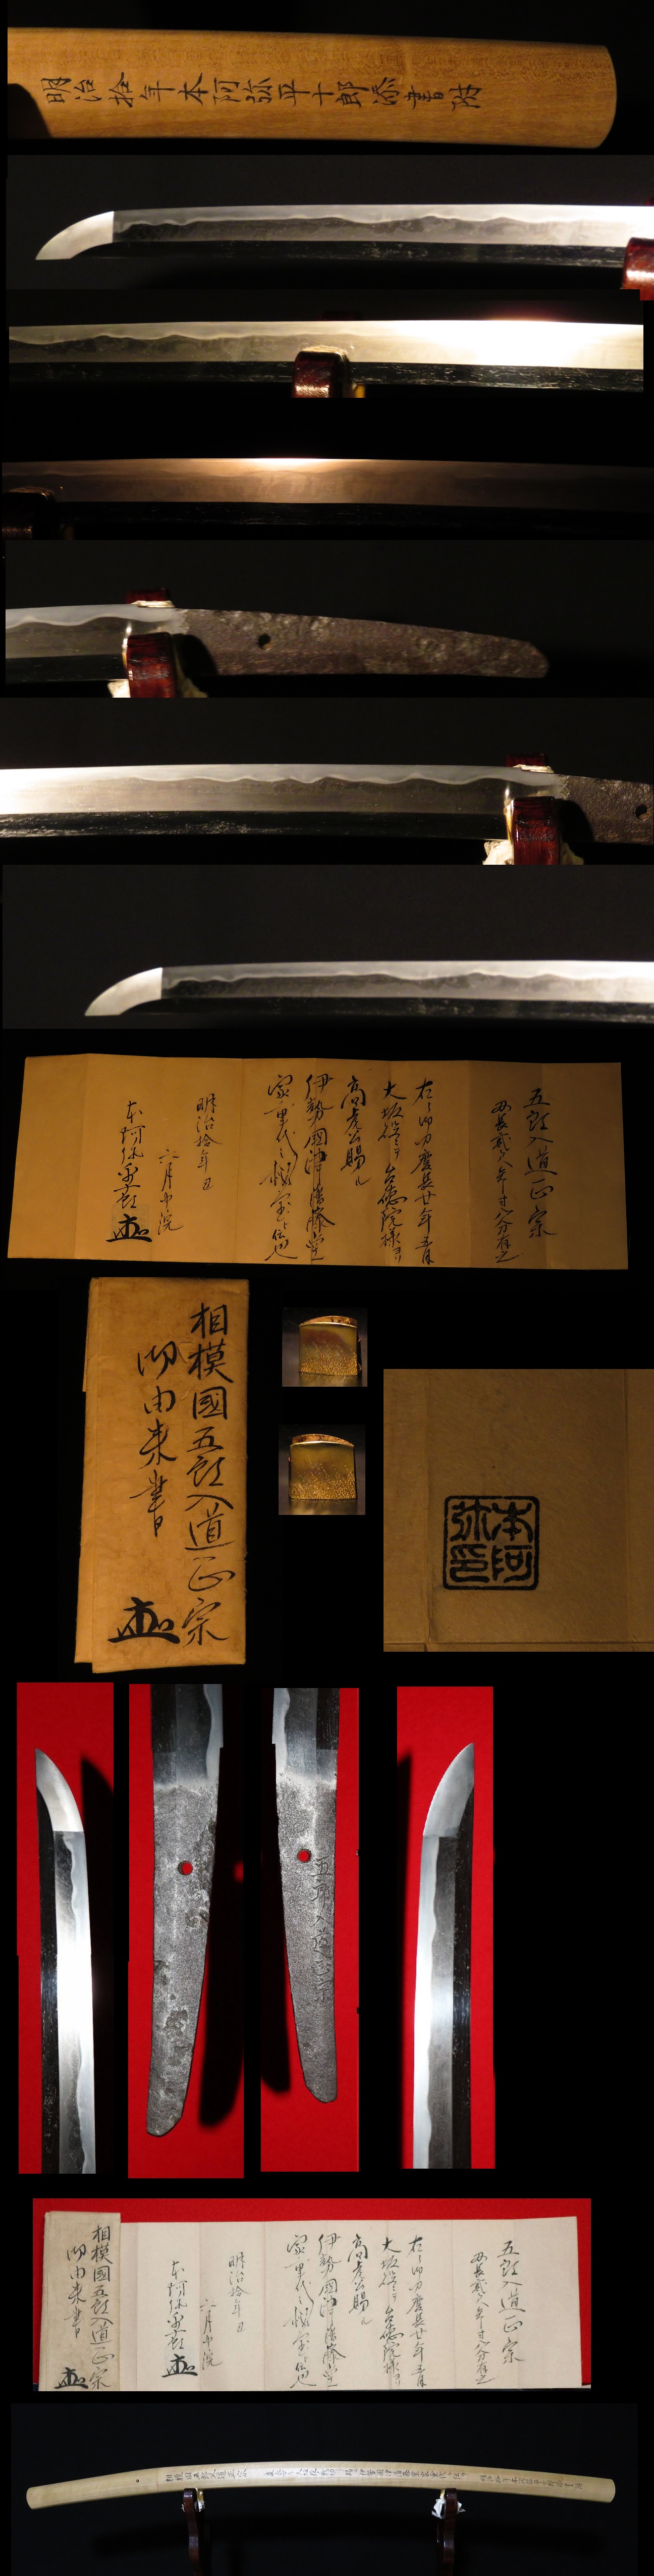 明治拾年本阿弥平十郎添書附
五郎入道正宗
刃長貳尺八寸八分有之
右之御刀慶長廿年五月
大坂役ニテ台徳院様ヨリ
高虎公賜ル
伊勢國津藩藤堂
家重代之秘宝ト伝也
明治拾年丑
六月中浣
本阿弥平十郎
相模國五郎入道正宗
御由来書
本阿弥印
五郎入道正宗
相模國五郎入道正宗
御由来書
五郎入道正宗
刃長貳尺八寸八分有之
右之御刀慶長廿年五月
大坂役ニテ台徳院様ヨリ
高虎公賜ル
伊勢國津藩藤堂
家重代之秘宝ト伝也
明治拾年丑
六月中浣
本阿弥平十郎
相模国五郎入道正宗